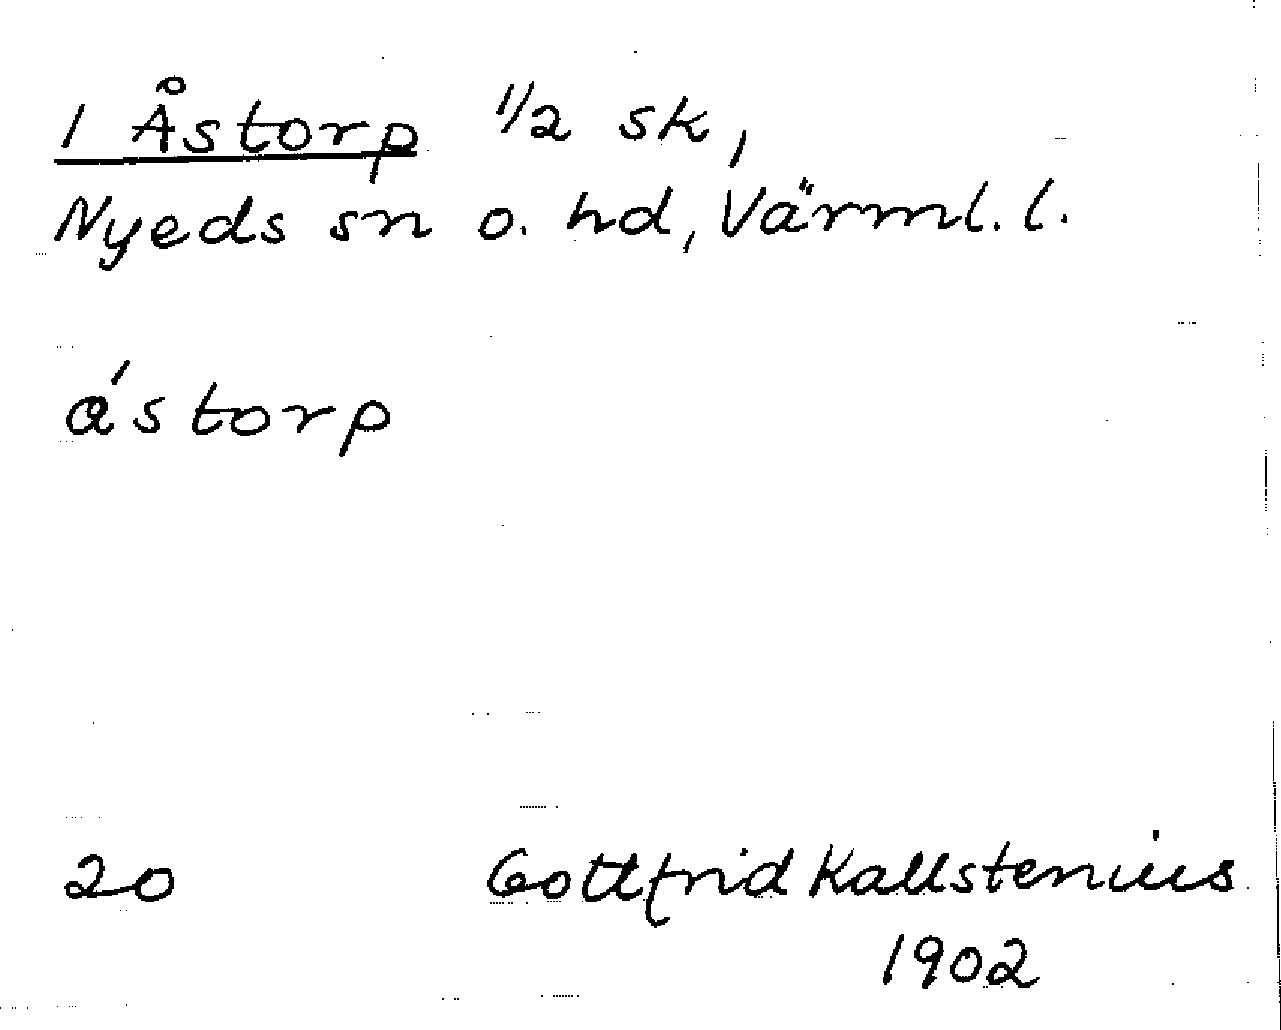 1 Åstorp 1/2 sk,
Nyeds sn o. hd, Värml. l.
åśtorp
20
Gottfrid Kallstenius
1902